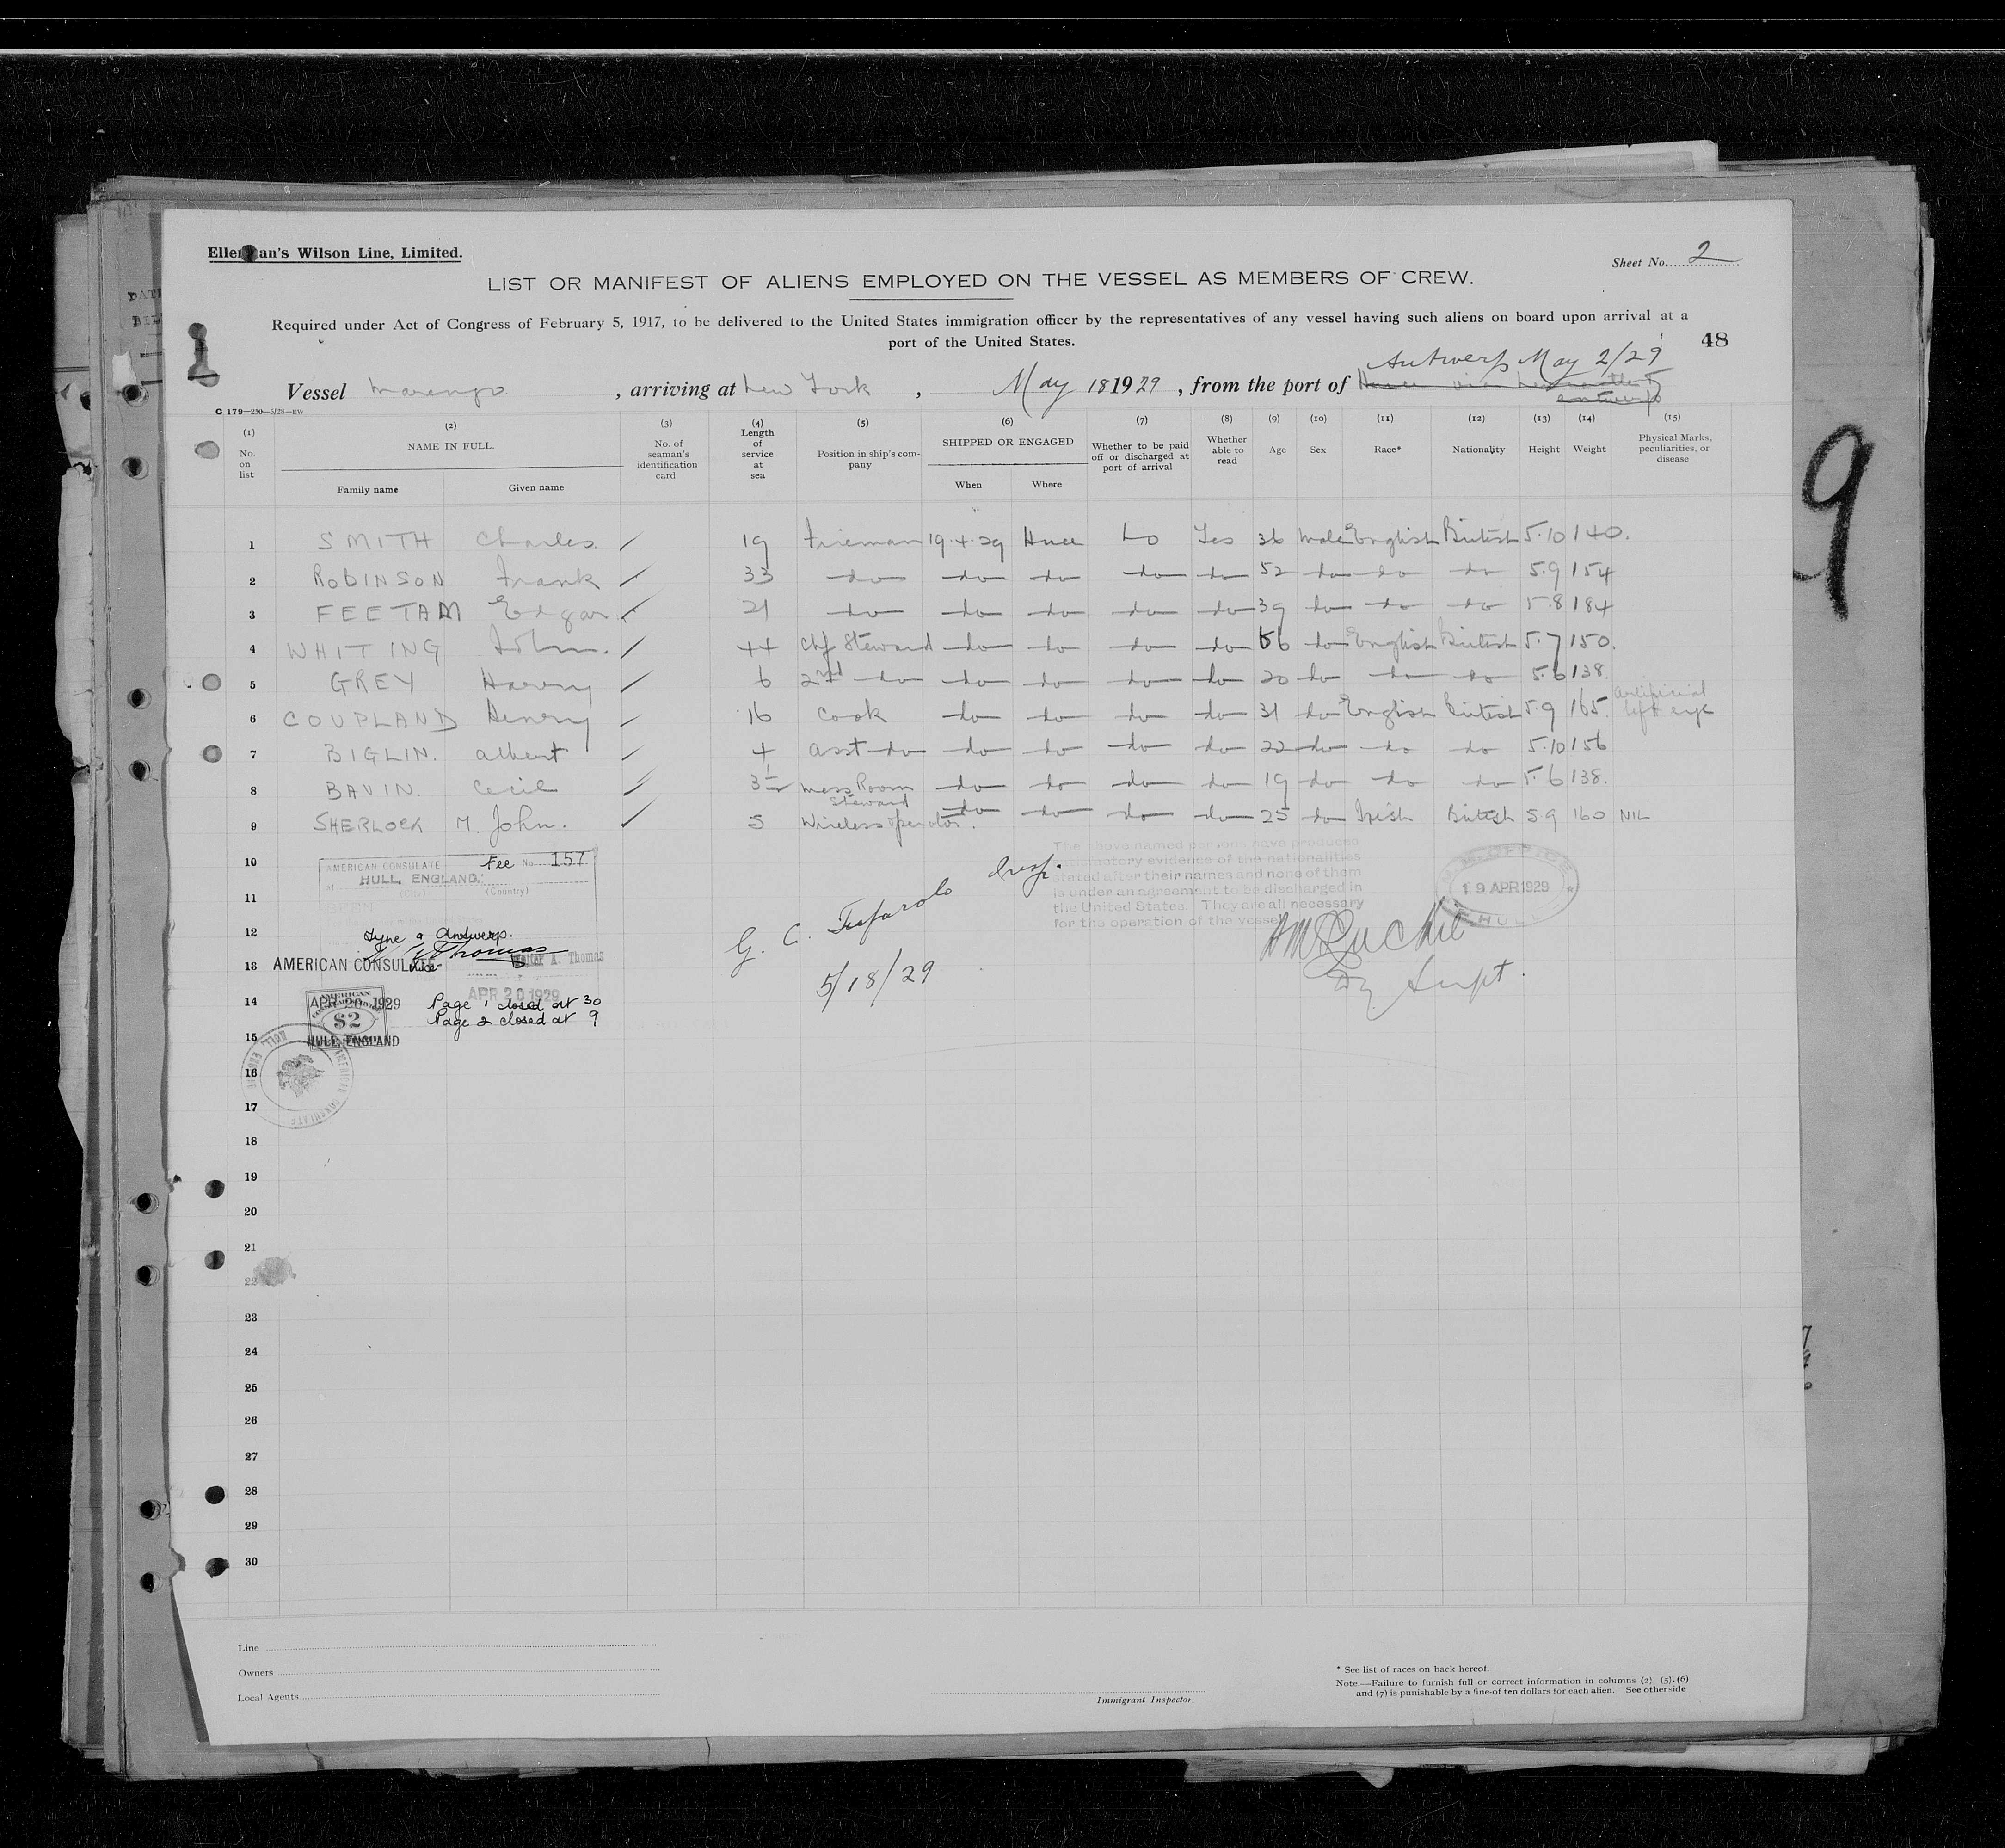 Ellerman's Wilson Line, Limited.
Sheet No. 2
LIST OR MANIFEST OF ALIENS EMPLOYED ON THE VESSEL AS MEMBERS OF CREW.
Required under Act of Congress of February 5, 1917, to be delivered to the United States immigration officer by the representatives of any vessel having such aliens on board upon arrival at a
port of the United States.
48
Antwerp May 2/29
Vessel Marengo, arriving at New York, May 18 1929, from the port of Hull via
Antwerp
G 179—250—5/28—EW
(1) No. on list
(2) NAME IN FULL. Family name Given name
(3) No. of seaman's identification card
(4) Length of service at sea
(5) Position in ship's company
(6) SHIPPED OR ENGAGED When Where
(7) Whether to be paid off or discharged at port of arrival
(8) Whether able to read
(9) Age
(10) Sex
(11) Race*
(12) Nationality
(13) Height
(14) Weight
(15) Physical Marks, peculiarities, or disease
1 SMITH Charles. 19 Fireman 19.4.29 Hull No Yes 36 Male English British 5.10 140.
2 ROBINSON Frank 33 do do do do do 52 do do do 5.9 154
3 FEETAM Edgar 21 do do do do do 39 do do do 5.8 184
4 WHITING John. 44 Chf Steward do do do do 56 do English British 5.7 150.
5 GREY Harry 6 2nd do do do do do 20 do do do 5.6 138
6 COUPLAND Henry 16 Cook do do do do 31 do English British 5.9 165. artificial left eye
7 BIGLIN. Albert 4 Asst do do do do do 22 do do do 5.10 156
8 BAVIN. Cecil 3½ Mess Room Steward do do do do 19 do do do 5.6 138.
9 SHERLOCK M. John. 5 Wireless operator. do do do do 25 do Irish British 5.9 160 NIL
10
11
12
13
14
15
16
17
18
19
20
21
22
23
24
25
26
27
28
29
30
AMERICAN CONSULATE Fee No. 157
at HULL, ENGLAND.
(City) (Country)
SEEN
Tyne & Antwerp.
Thomas
Walter A. Thomas
AMERICAN CONSULATE
Vice
APR 20 1929
APR 20 1929
AMERICAN
$2
HULL, ENGLAND
Page 1 closed at 30
Page 2 closed at 9
AMERICAN CONSULATE HULL ENGLAND
G. C. Insp.
5/18/29
The above named persons have produced
satisfactory evidence of the nationalities
stated after their names and none of them
is under an agreement to be discharged in
the United States. They are all necessary
for the operation of the vessel
19 APR 1929
HULL
Dy Supt.
9
Line
Owners
Local Agents
Immigrant Inspector.
* See list of races on back hereof.
Note.—Failure to furnish full or correct information in columns (2) (5) (6)
and (7) is punishable by a fine of ten dollars for each alien. See otherside